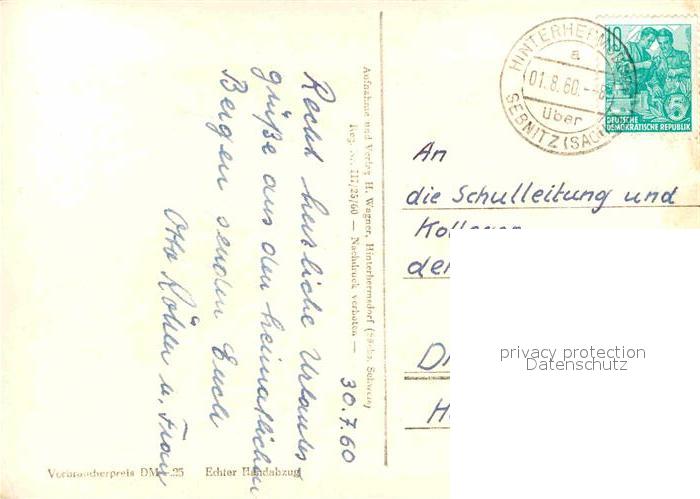 HINTERHERMSDORF
a
01.8.60.-8
über
SEBNITZ (SACHS
10
5
DEUTSCHE
DEMOKRATISCHE REPUBLIK
An
die Schulleitung und
Kollegen
der
D
H
privacy protection
Datenschutz
Aufnahme und Verlag H. Wagner, Hinterhermsdorf (Sächs. Schweiz)
Reg.-Nr. III/25/60 — Nachdruck verboten —
30.7.60
Recht herzliche Urlaubs
grüße aus den heimatlichen
Bergen senden Euch
Otto u. Frau
Verbraucherpreis DM -.25 Echter Handabzug